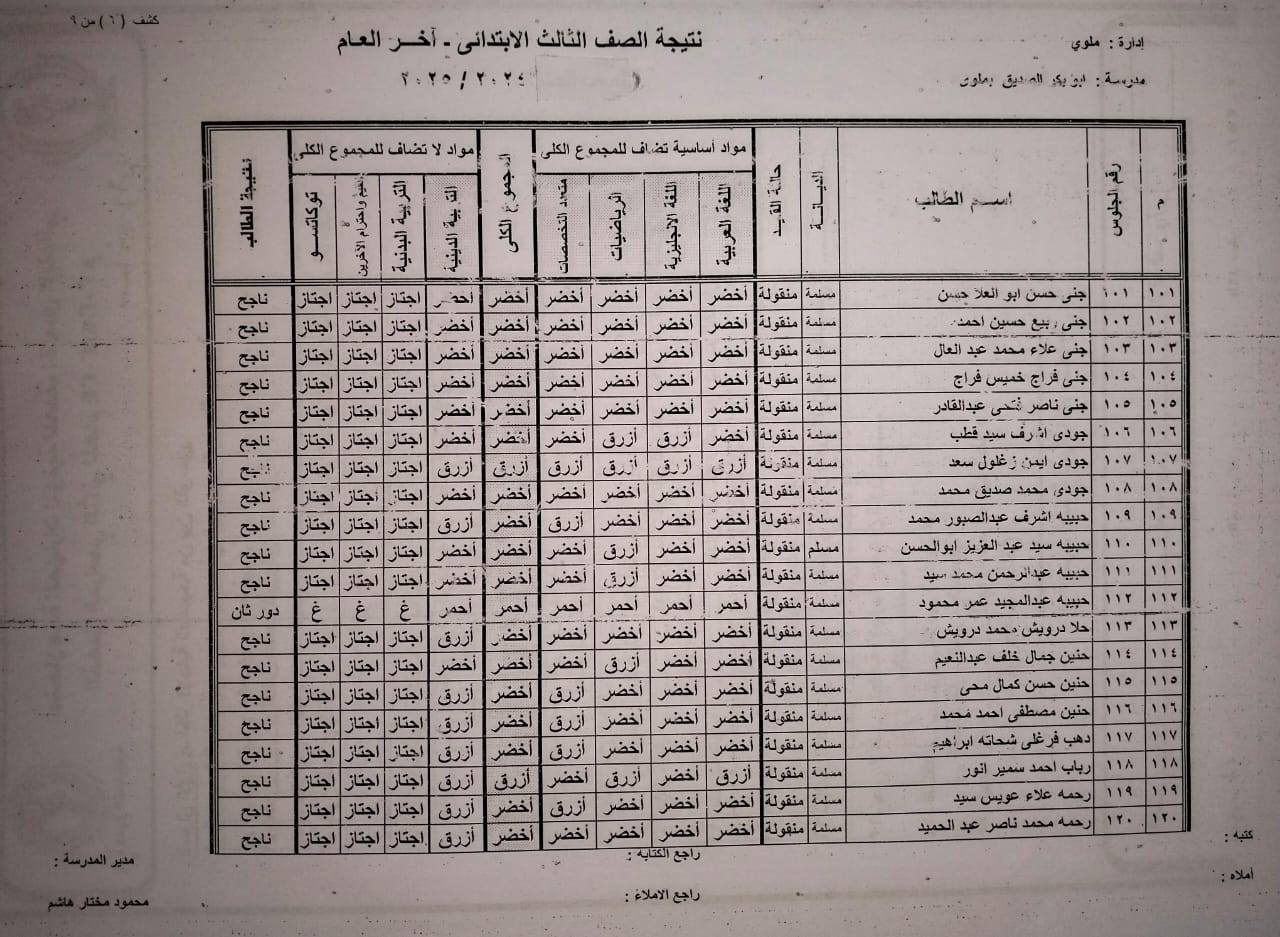 كشف (٦) من ٩
إدارة : ملوي
نتيجة الصف الثالث الابتدائى - آخر العام
مدرسة : ابو بكر الصديق بملوى
٢٠٢٤ / ٢٠٢٥
م | رقم الجلوس | اسم الطالب | الديانة | حالة القيد | مواد أساسية تضاف للمجموع الكلى | المجموع الكلى | مواد لا تضاف للمجموع الكلى | نتيجة الطالب
اللغة العربية | اللغة الانجليزية | الرياضيات | متعدد التخصصات | التربية الدينية | التربية البدنية | القيم واحترام الآخرين | توكاتسو
١٠١ | ١٠١ | جنى حسن ابو العلا حسن | مسلمة | منقولة | أخضر | أخضر | أخضر | أخضر | أخضر | أخضر | اجتاز | اجتاز | اجتاز | ناجح
١٠٢ | ١٠٢ | جنى ربيع حسين احمد | مسلمة | منقولة | أخضر | أخضر | أخضر | أخضر | أخضر | أخضر | اجتاز | اجتاز | اجتاز | ناجح
١٠٣ | ١٠٣ | جنى علاء محمد عبد العال | مسلمة | منقولة | أخضر | أخضر | أخضر | أخضر | أخضر | أخضر | اجتاز | اجتاز | اجتاز | ناجح
١٠٤ | ١٠٤ | جنى فراج خميس فراج | مسلمة | منقولة | أخضر | أخضر | أخضر | أخضر | أخضر | أخضر | اجتاز | اجتاز | اجتاز | ناجح
١٠٥ | ١٠٥ | جنى ناصر فتحى عبدالقادر | مسلمة | منقولة | أخضر | أخضر | أخضر | أخضر | أخضر | أخضر | اجتاز | اجتاز | اجتاز | ناجح
١٠٦ | ١٠٦ | جودى اشرف سيد قطب | مسلمة | منقولة | أخضر | أزرق | أزرق | أخضر | أخضر | أخضر | اجتاز | اجتاز | اجتاز | ناجح
١٠٧ | ١٠٧ | جودى ايمن زغلول سعد | مسلمة | منقولة | أزرق | أزرق | أزرق | أزرق | أزرق | أزرق | اجتاز | اجتاز | اجتاز | ناجح
١٠٨ | ١٠٨ | جودى محمد صديق محمد | مسلمة | منقولة | أخضر | أخضر | أخضر | أخضر | أخضر | أخضر | اجتاز | اجتاز | اجتاز | ناجح
١٠٩ | ١٠٩ | حبيبه اشرف عبدالصبور محمد | مسلمة | منقولة | أخضر | أخضر | أخضر | أزرق | أخضر | أزرق | اجتاز | اجتاز | اجتاز | ناجح
١١٠ | ١١٠ | حبيبه سيد عبد العزيز ابوالحسن | مسلم | منقولة | أخضر | أخضر | أزرق | أخضر | أخضر | أخضر | اجتاز | اجتاز | اجتاز | ناجح
١١١ | ١١١ | حبيبه عبدالرحمن محمد سيد | مسلمة | منقولة | أخضر | أخضر | أزرق | أخضر | أخضر | أخضر | اجتاز | اجتاز | اجتاز | ناجح
١١٢ | ١١٢ | حبيبه عبدالمجيد عمر محمود | مسلمة | منقولة | أحمر | أحمر | أحمر | أحمر | أحمر | أحمر | غ | غ | غ | دور ثان
١١٣ | ١١٣ | حلا درويش محمد درويش | مسلمة | منقولة | أخضر | أخضر | أخضر | أخضر | أخضر | أزرق | اجتاز | اجتاز | اجتاز | ناجح
١١٤ | ١١٤ | حنين جمال خلف عبدالنعيم | مسلمة | منقولة | أخضر | أخضر | أزرق | أخضر | أخضر | أخضر | اجتاز | اجتاز | اجتاز | ناجح
١١٥ | ١١٥ | حنين حسن كمال محى | مسلمة | منقولة | أخضر | أخضر | أخضر | أزرق | أخضر | أزرق | اجتاز | اجتاز | اجتاز | ناجح
١١٦ | ١١٦ | حنين مصطفى احمد محمد | مسلمة | منقولة | أخضر | أخضر | أخضر | أزرق | أخضر | أزرق | اجتاز | اجتاز | اجتاز | ناجح
١١٧ | ١١٧ | دهب فرغلى شحاته ابراهيم | مسلمة | منقولة | أخضر | أخضر | أخضر | أزرق | أخضر | أزرق | اجتاز | اجتاز | اجتاز | ناجح
١١٨ | ١١٨ | رباب احمد سمير انور | مسلمة | منقولة | أزرق | أخضر | أزرق | أخضر | أزرق | أزرق | اجتاز | اجتاز | اجتاز | ناجح
١١٩ | ١١٩ | رحمه علاء عويس سيد | مسلمة | منقولة | أخضر | أخضر | أخضر | أزرق | أخضر | أزرق | اجتاز | اجتاز | اجتاز | ناجح
١٢٠ | ١٢٠ | رحمه محمد ناصر عبد الحميد | مسلمة | منقولة | أخضر | أخضر | أخضر | أخضر | أخضر | أزرق | اجتاز | اجتاز | اجتاز | ناجح
كتبه :
راجع الكتابه :
مدير المدرسة :
أملاه :
راجع الاملاء :
محمود مختار هاشم